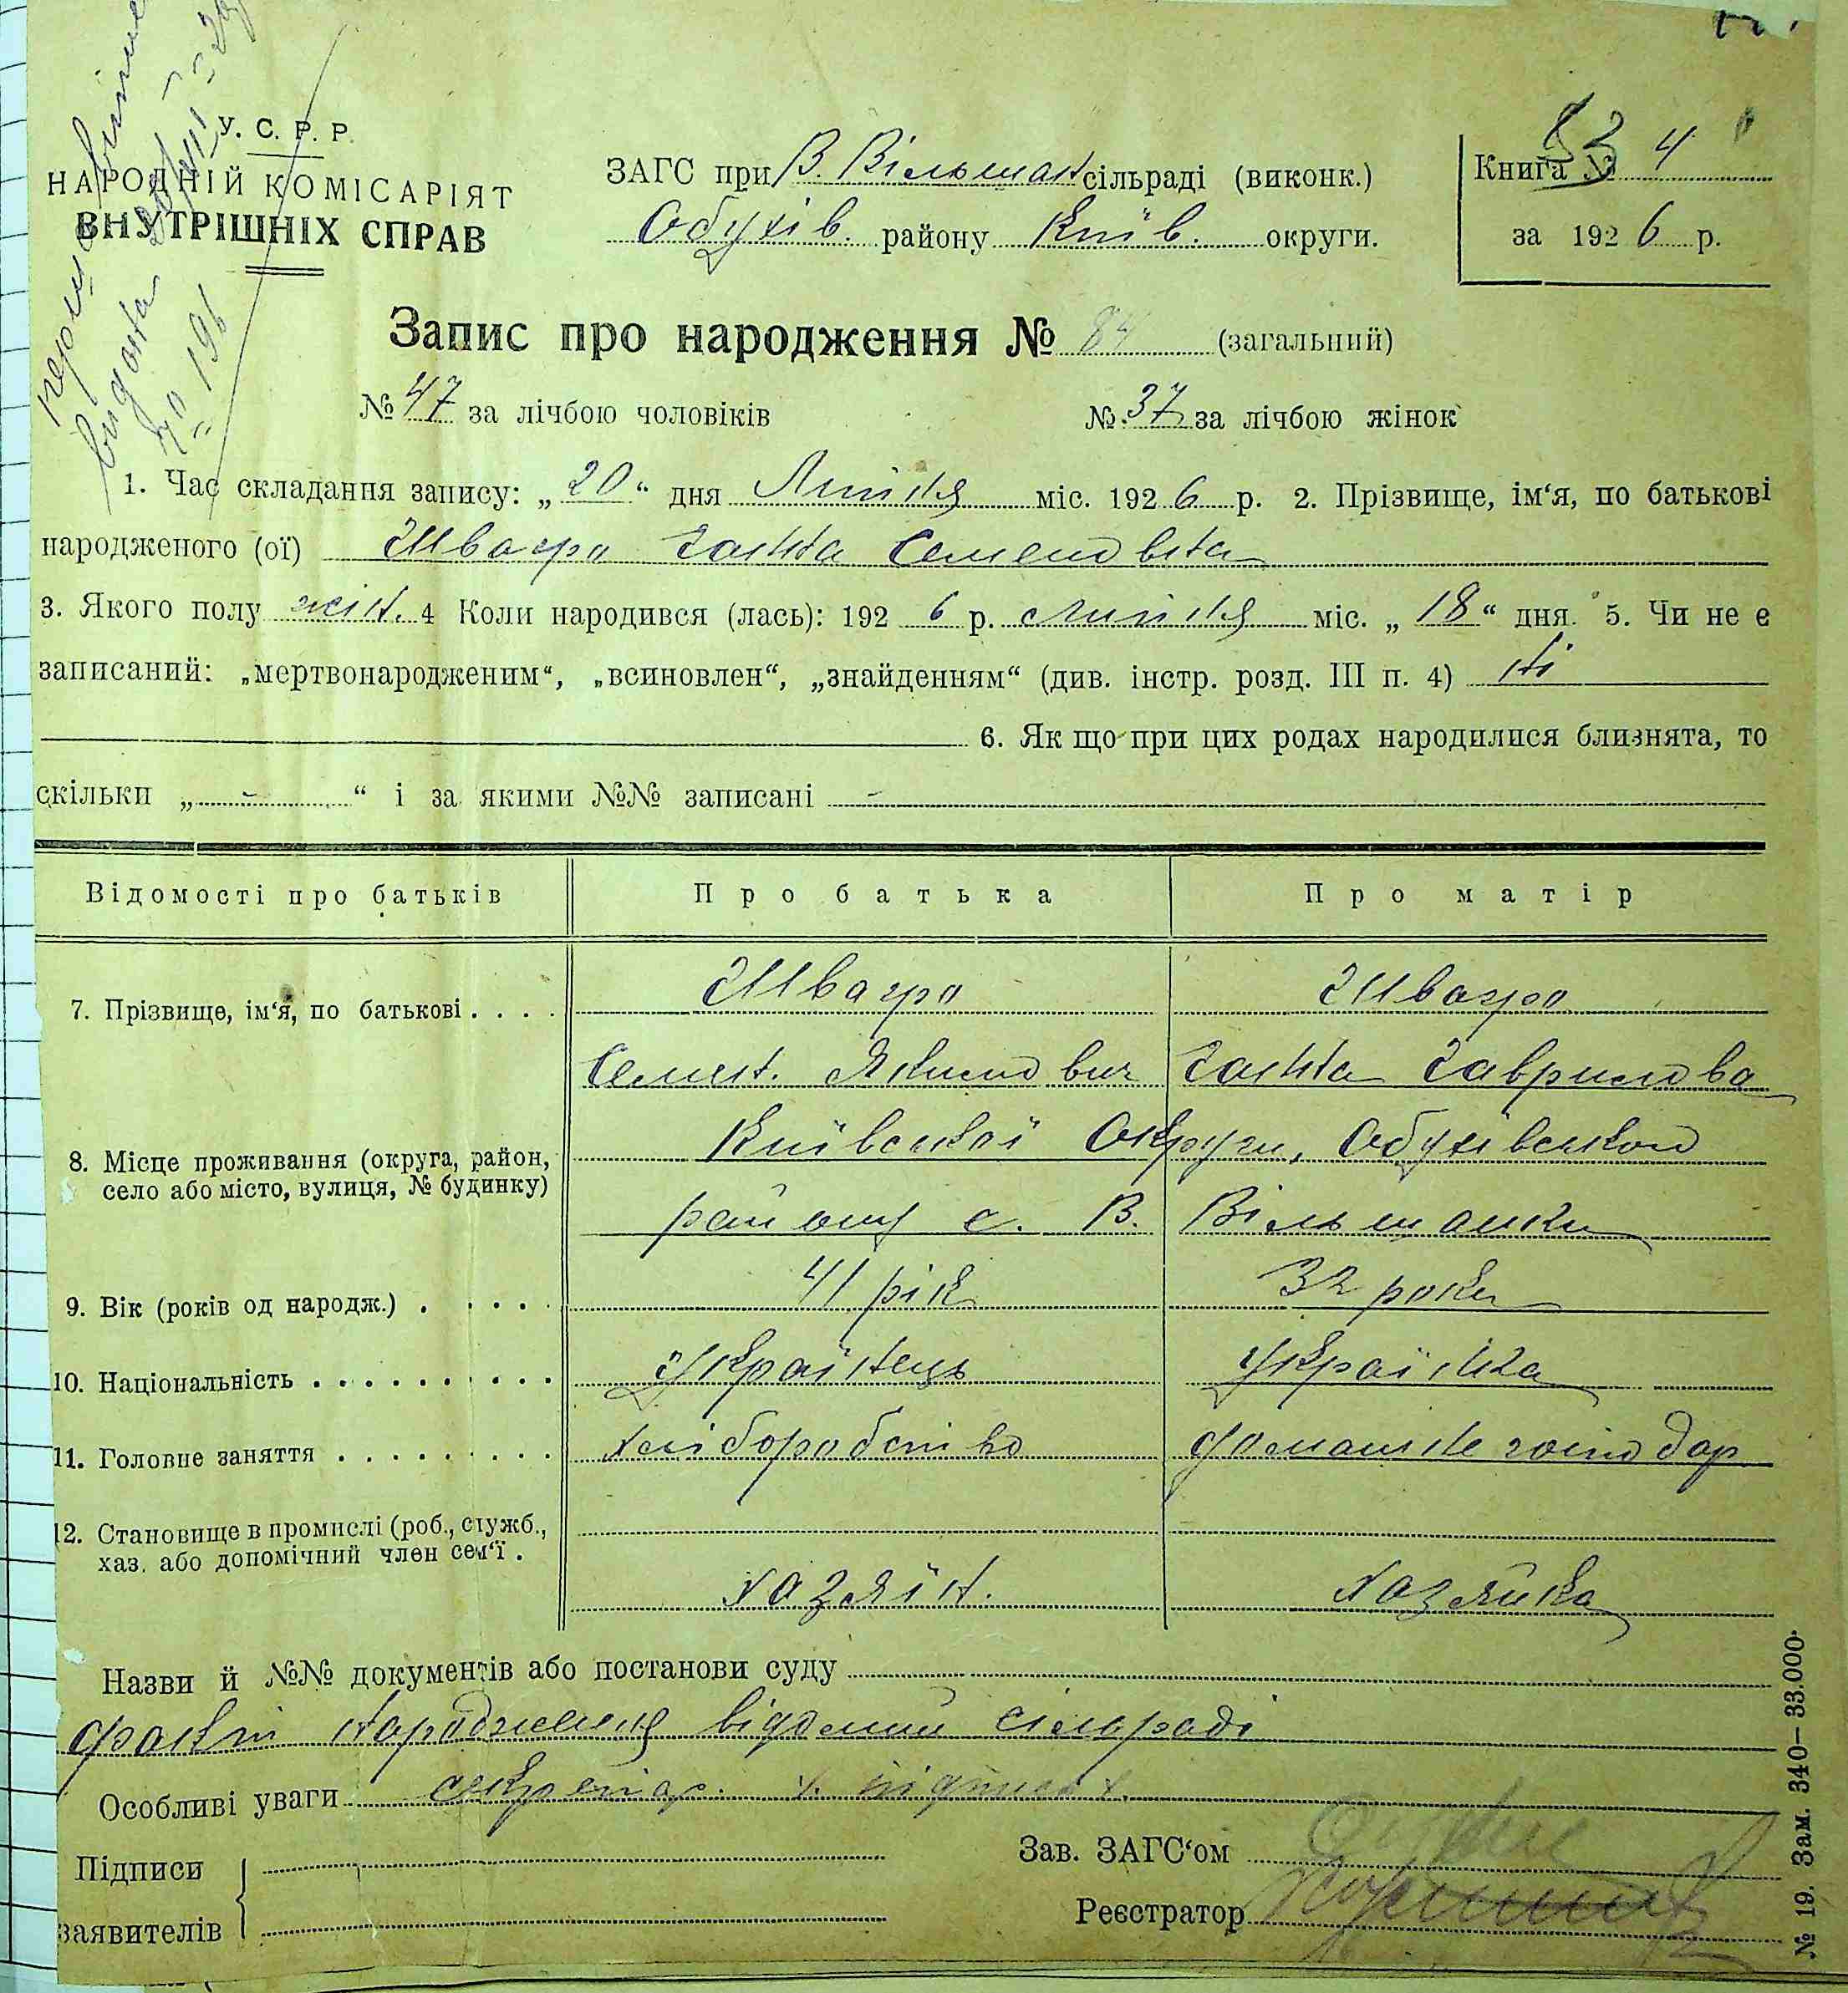 У. С. Р. Р.
НАРОДНІЙ КОМІСАРІЯТ
ВНУТРІШНІХ СПРАВ
ЗАГС при В. Вільшан сільраді (виконк.)
Обухів. району Київ. округи.
Книга № 4
за 1926 р.
Запис про народження № 84 (загальний)
№ 47 за лічбою чоловіків № 37 за лічбою жінок
1. Час складання запису: „20“ дня Липня міс. 1926 р. 2. Прізвище, ім‘я, по батькові
народженого (ої) Швагро Ганна Семеновна
3. Якого полу жін. 4 Коли народився (лась): 1926 р. Липня міс. „18“ дня. 5. Чи не є
записаний: „мертвонародженим“, „всиновлен“, „знайденням“ (див. інстр. розд. III п. 4) ні
6. Як що при цих родах народилися близнята, то
скільки „ - “ і за якими №№ записані -
Відомості про батьків Про батька Про матір
7. Прізвище, ім‘я, по батькові . . . . Швагро Швагро
Семен. Якимович Ганна Гаврилова
8. Місце проживання (округа, район,
село або місто, вулиця, № будинку)
Київської Округи, Обухівського
району с. В. Вільшанки
9. Вік (років од народж.) . . . . . 41 рік 32 роки
10. Національність . . . . . . . . . . Українець Українка
11. Головне заняття . . . . . . . . . хліборобство домашнє господар
12. Становище в промислі (роб., служб.,
хаз. або допомічний член сем‘ї .
хазяїн. хазяйка
Назви й №№ документів або постанови суду
факт народження відомий сільраді
Особливі уваги секретар.
Підписи
заявителів
Зав. ЗАГС‘ом
Реєстратор
№ 19. Зам. 340—33.000.